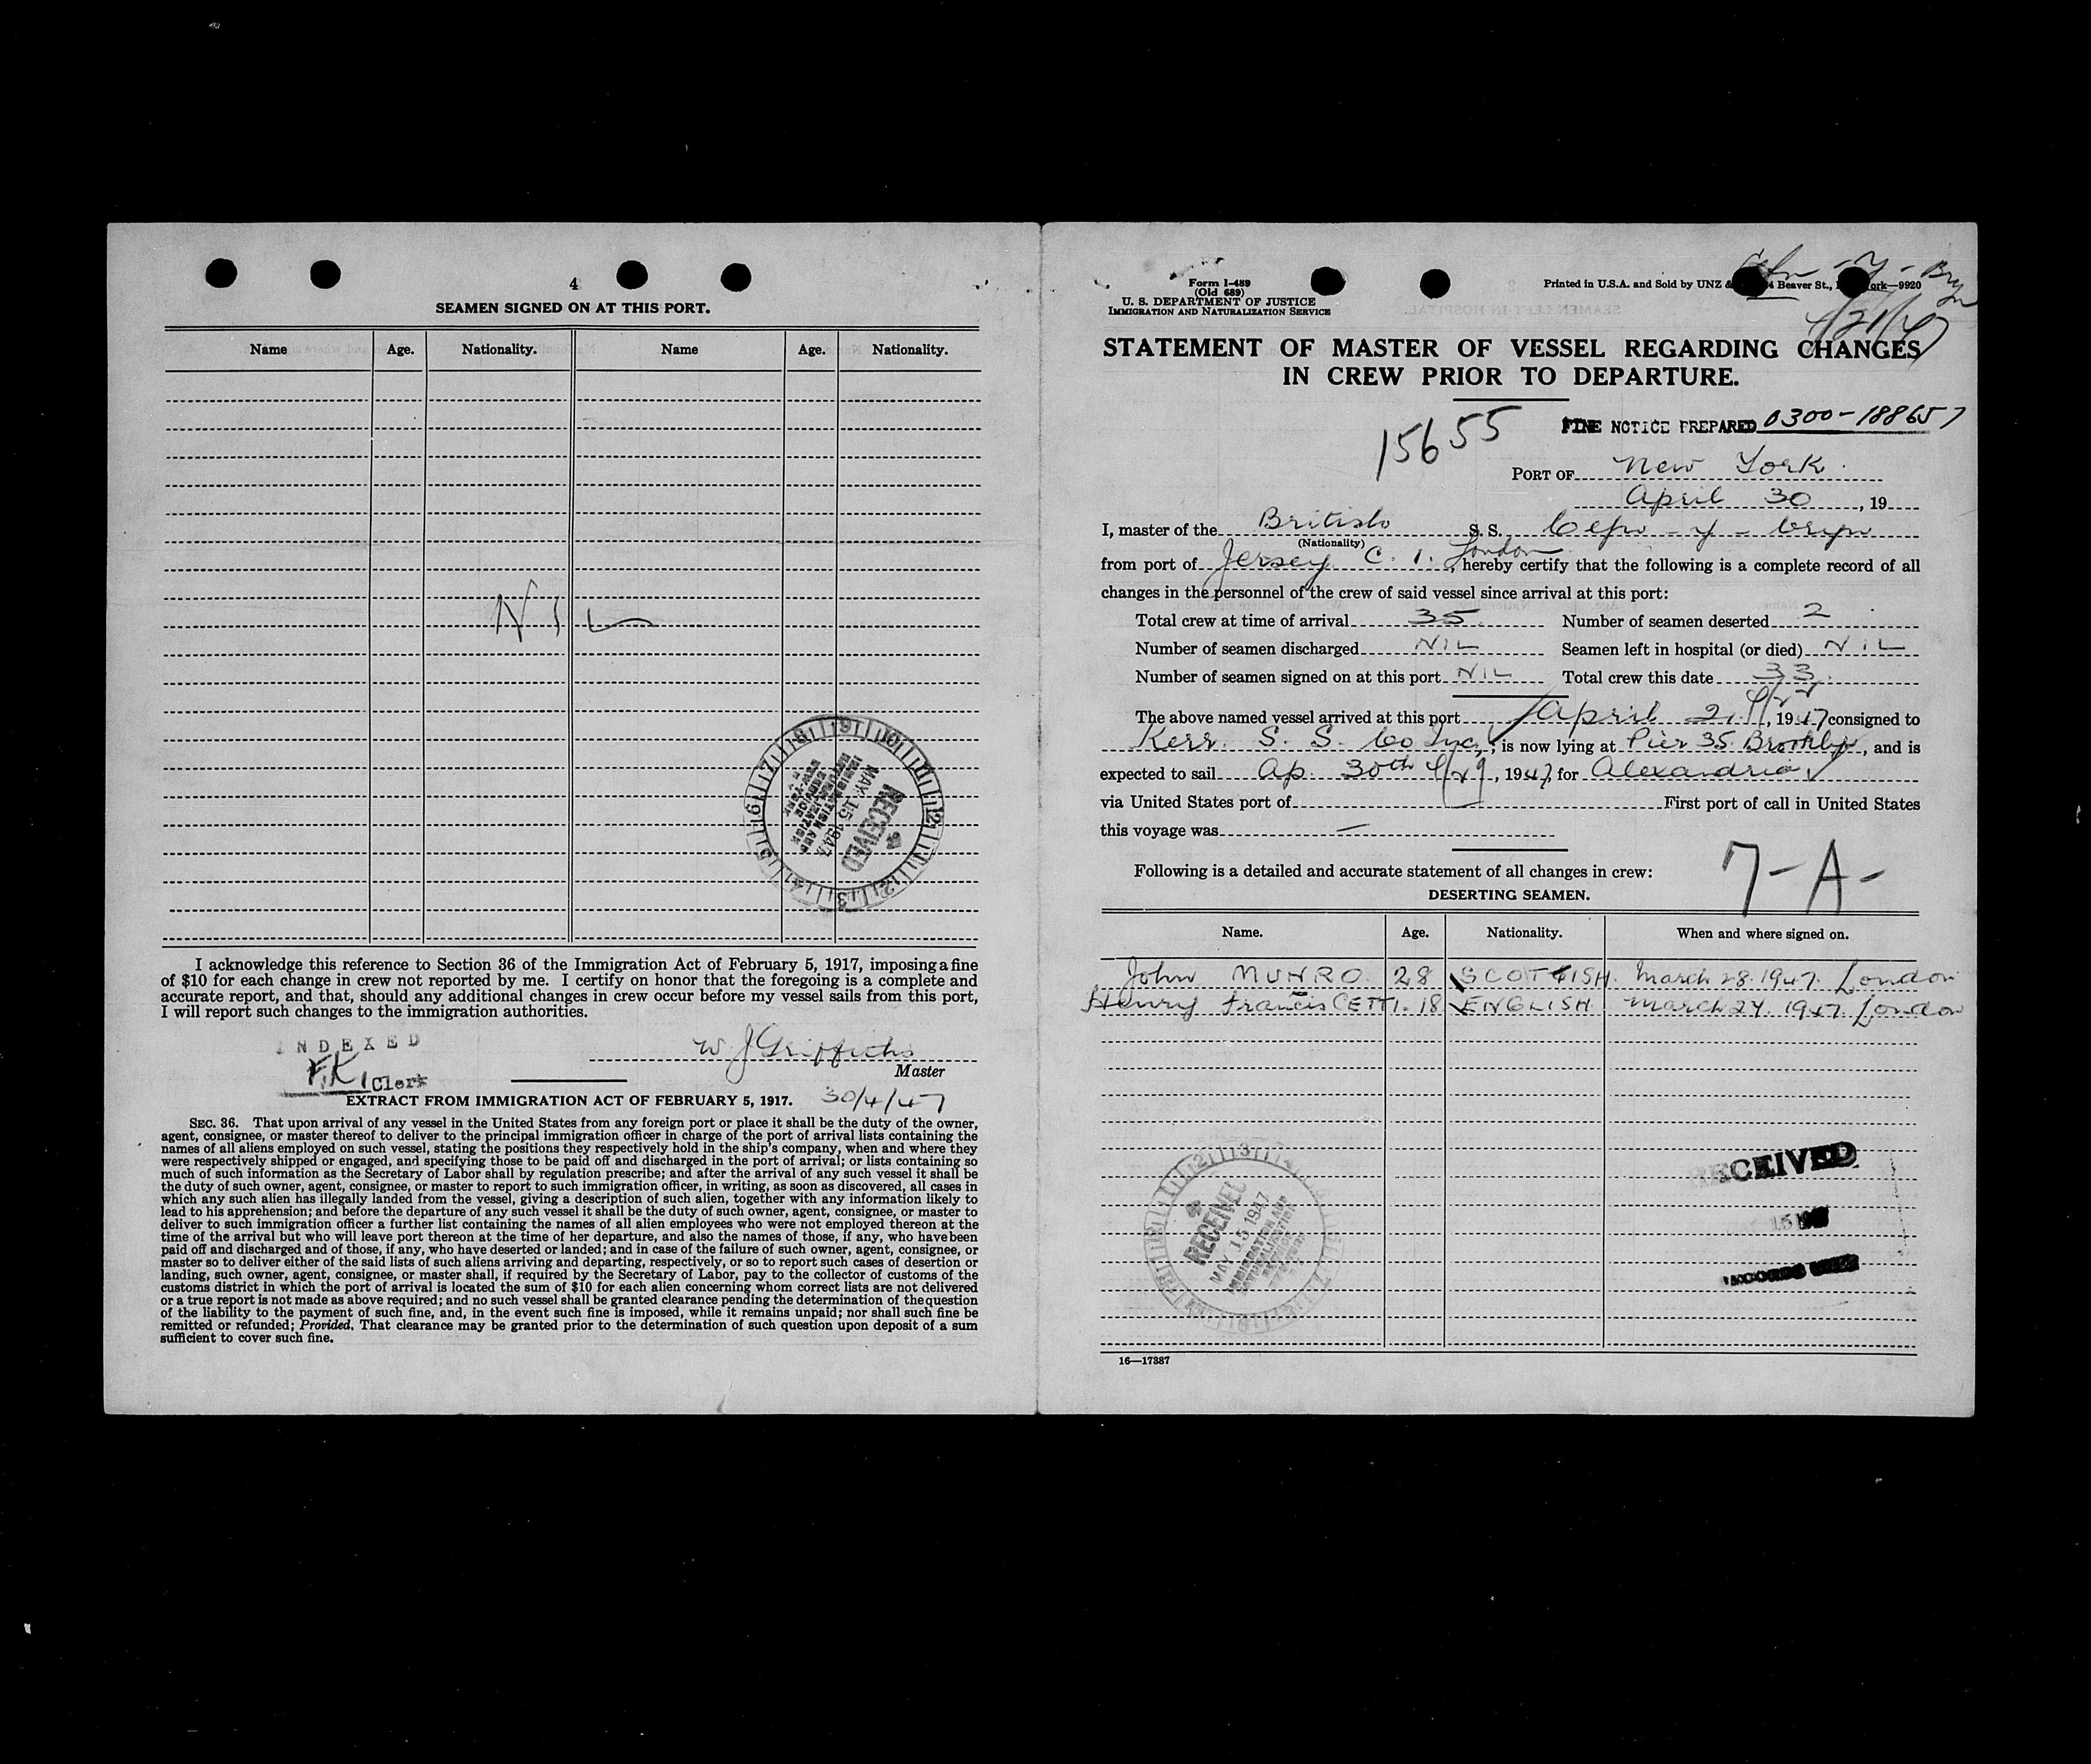 4
SEAMEN SIGNED ON AT THIS PORT.
Name Age. Nationality. Name Age. Nationality.
NIL
RECEIVED
MAY 15 1947
IMMIGRATION AND
NATURALIZATION
SERVICE
NEW YORK
I acknowledge this reference to Section 36 of the Immigration Act of February 5, 1917, imposing a fine
of $10 for each change in crew not reported by me. I certify on honor that the foregoing is a complete and
accurate report, and that, should any additional changes in crew occur before my vessel sails from this port,
I will report such changes to the immigration authorities.
INDEXED
F.K. Clerk
W J Griffiths
Master
30/4/47
EXTRACT FROM IMMIGRATION ACT OF FEBRUARY 5, 1917.
SEC. 36. That upon arrival of any vessel in the United States from any foreign port or place it shall be the duty of the owner,
agent, consignee, or master thereof to deliver to the principal immigration officer in charge of the port of arrival lists containing the
names of all aliens employed on such vessel, stating the positions they respectively hold in the ship's company, when and where they
were respectively shipped or engaged, and specifying those to be paid off and discharged in the port of arrival; or lists containing so
much of such information as the Secretary of Labor shall by regulation prescribe; and after the arrival of any such vessel it shall be
the duty of such owner, agent, consignee, or master to report to such immigration officer, in writing, as soon as discovered, all cases in
which any such alien has illegally landed from the vessel, giving a description of such alien, together with any information likely to
lead to his apprehension; and before the departure of any such vessel it shall be the duty of such owner, agent, consignee, or master to
deliver to such immigration officer a further list containing the names of all alien employees who were not employed thereon at the
time of the arrival but who will leave port thereon at the time of her departure, and also the names of those, if any, who have been
paid off and discharged and of those, if any, who have deserted or landed; and in case of the failure of such owner, agent, consignee, or
master so to deliver either of the said lists of such aliens arriving and departing, respectively, or so to report such cases of desertion or
landing, such owner, agent, consignee, or master shall, if required by the Secretary of Labor, pay to the collector of customs of the
customs district in which the port of arrival is located the sum of $10 for each alien concerning whom correct lists are not delivered
or a true report is not made as above required; and no such vessel shall be granted clearance pending the determination of the question
of the liability to the payment of such fine, and, in the event such fine is imposed, while it remains unpaid; nor shall such fine be
remitted or refunded; Provided, That clearance may be granted prior to the determination of such question upon deposit of a sum
sufficient to cover such fine.
Form I-489
(Old 689)
U. S. DEPARTMENT OF JUSTICE
IMMIGRATION AND NATURALIZATION SERVICE
Printed in U.S.A. and Sold by UNZ & 4 Beaver St., ork—9920
4/21/47
STATEMENT OF MASTER OF VESSEL REGARDING CHANGES
IN CREW PRIOR TO DEPARTURE.
15655
FINE NOTICE PREPARED 0300-188657
PORT OF New York
April 30, 19
I, master of the British S. S. Cefn-y-bryn
(Nationality)
from port of Jersey C. I. London, hereby certify that the following is a complete record of all
changes in the personnel of the crew of said vessel since arrival at this port:
Total crew at time of arrival 35 Number of seamen deserted 2
Number of seamen discharged NIL Seamen left in hospital (or died) NIL
Number of seamen signed on at this port NIL Total crew this date 33
The above named vessel arrived at this port April 21, 1947 consigned to
Kerr S. S. Co Inc, is now lying at Pier 35 Brooklyn, and is
expected to sail Ap. 30th 4/29, 1947, for Alexandria
via United States port of First port of call in United States
this voyage was —
7-A-
Following is a detailed and accurate statement of all changes in crew:
DESERTING SEAMEN.
Name. Age. Nationality. When and where signed on.
John MUNRO 28 SCOTTISH. March 28. 1947. London
Henry Francis CETTI. 18 ENGLISH March 24. 1947 London
RECEIVED
MAY 15 1947
IMMIGRATION AND
NATURALIZATION
SERVICE
NEW YORK
RECEIVED
MAY 15 1947
16—17387